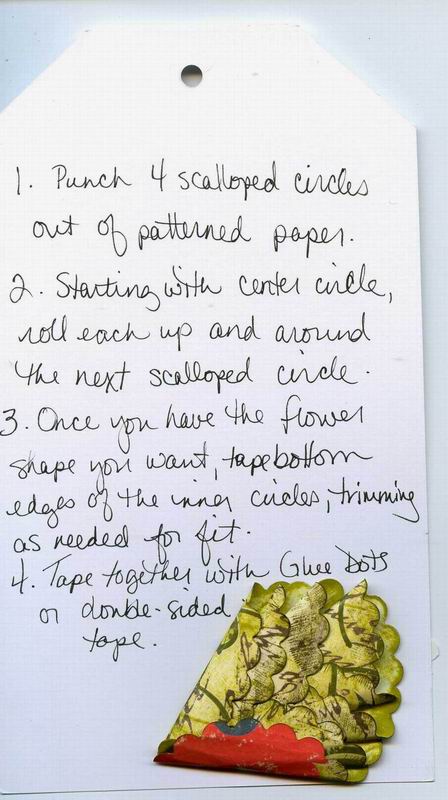 1. Punch 4 scalloped circles
out of patterned paper.
2. Starting with center circle,
roll each up and around
the next scalloped circle.
3. Once you have the flower
shape you want, tape bottom
edges of the inner circles, trimming
as needed for fit.
4. Tape together with Glue Dots
or double-sided
tape.